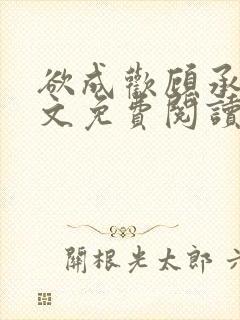 欲成歡顧承
文免費閱讀
關根光太郎 六